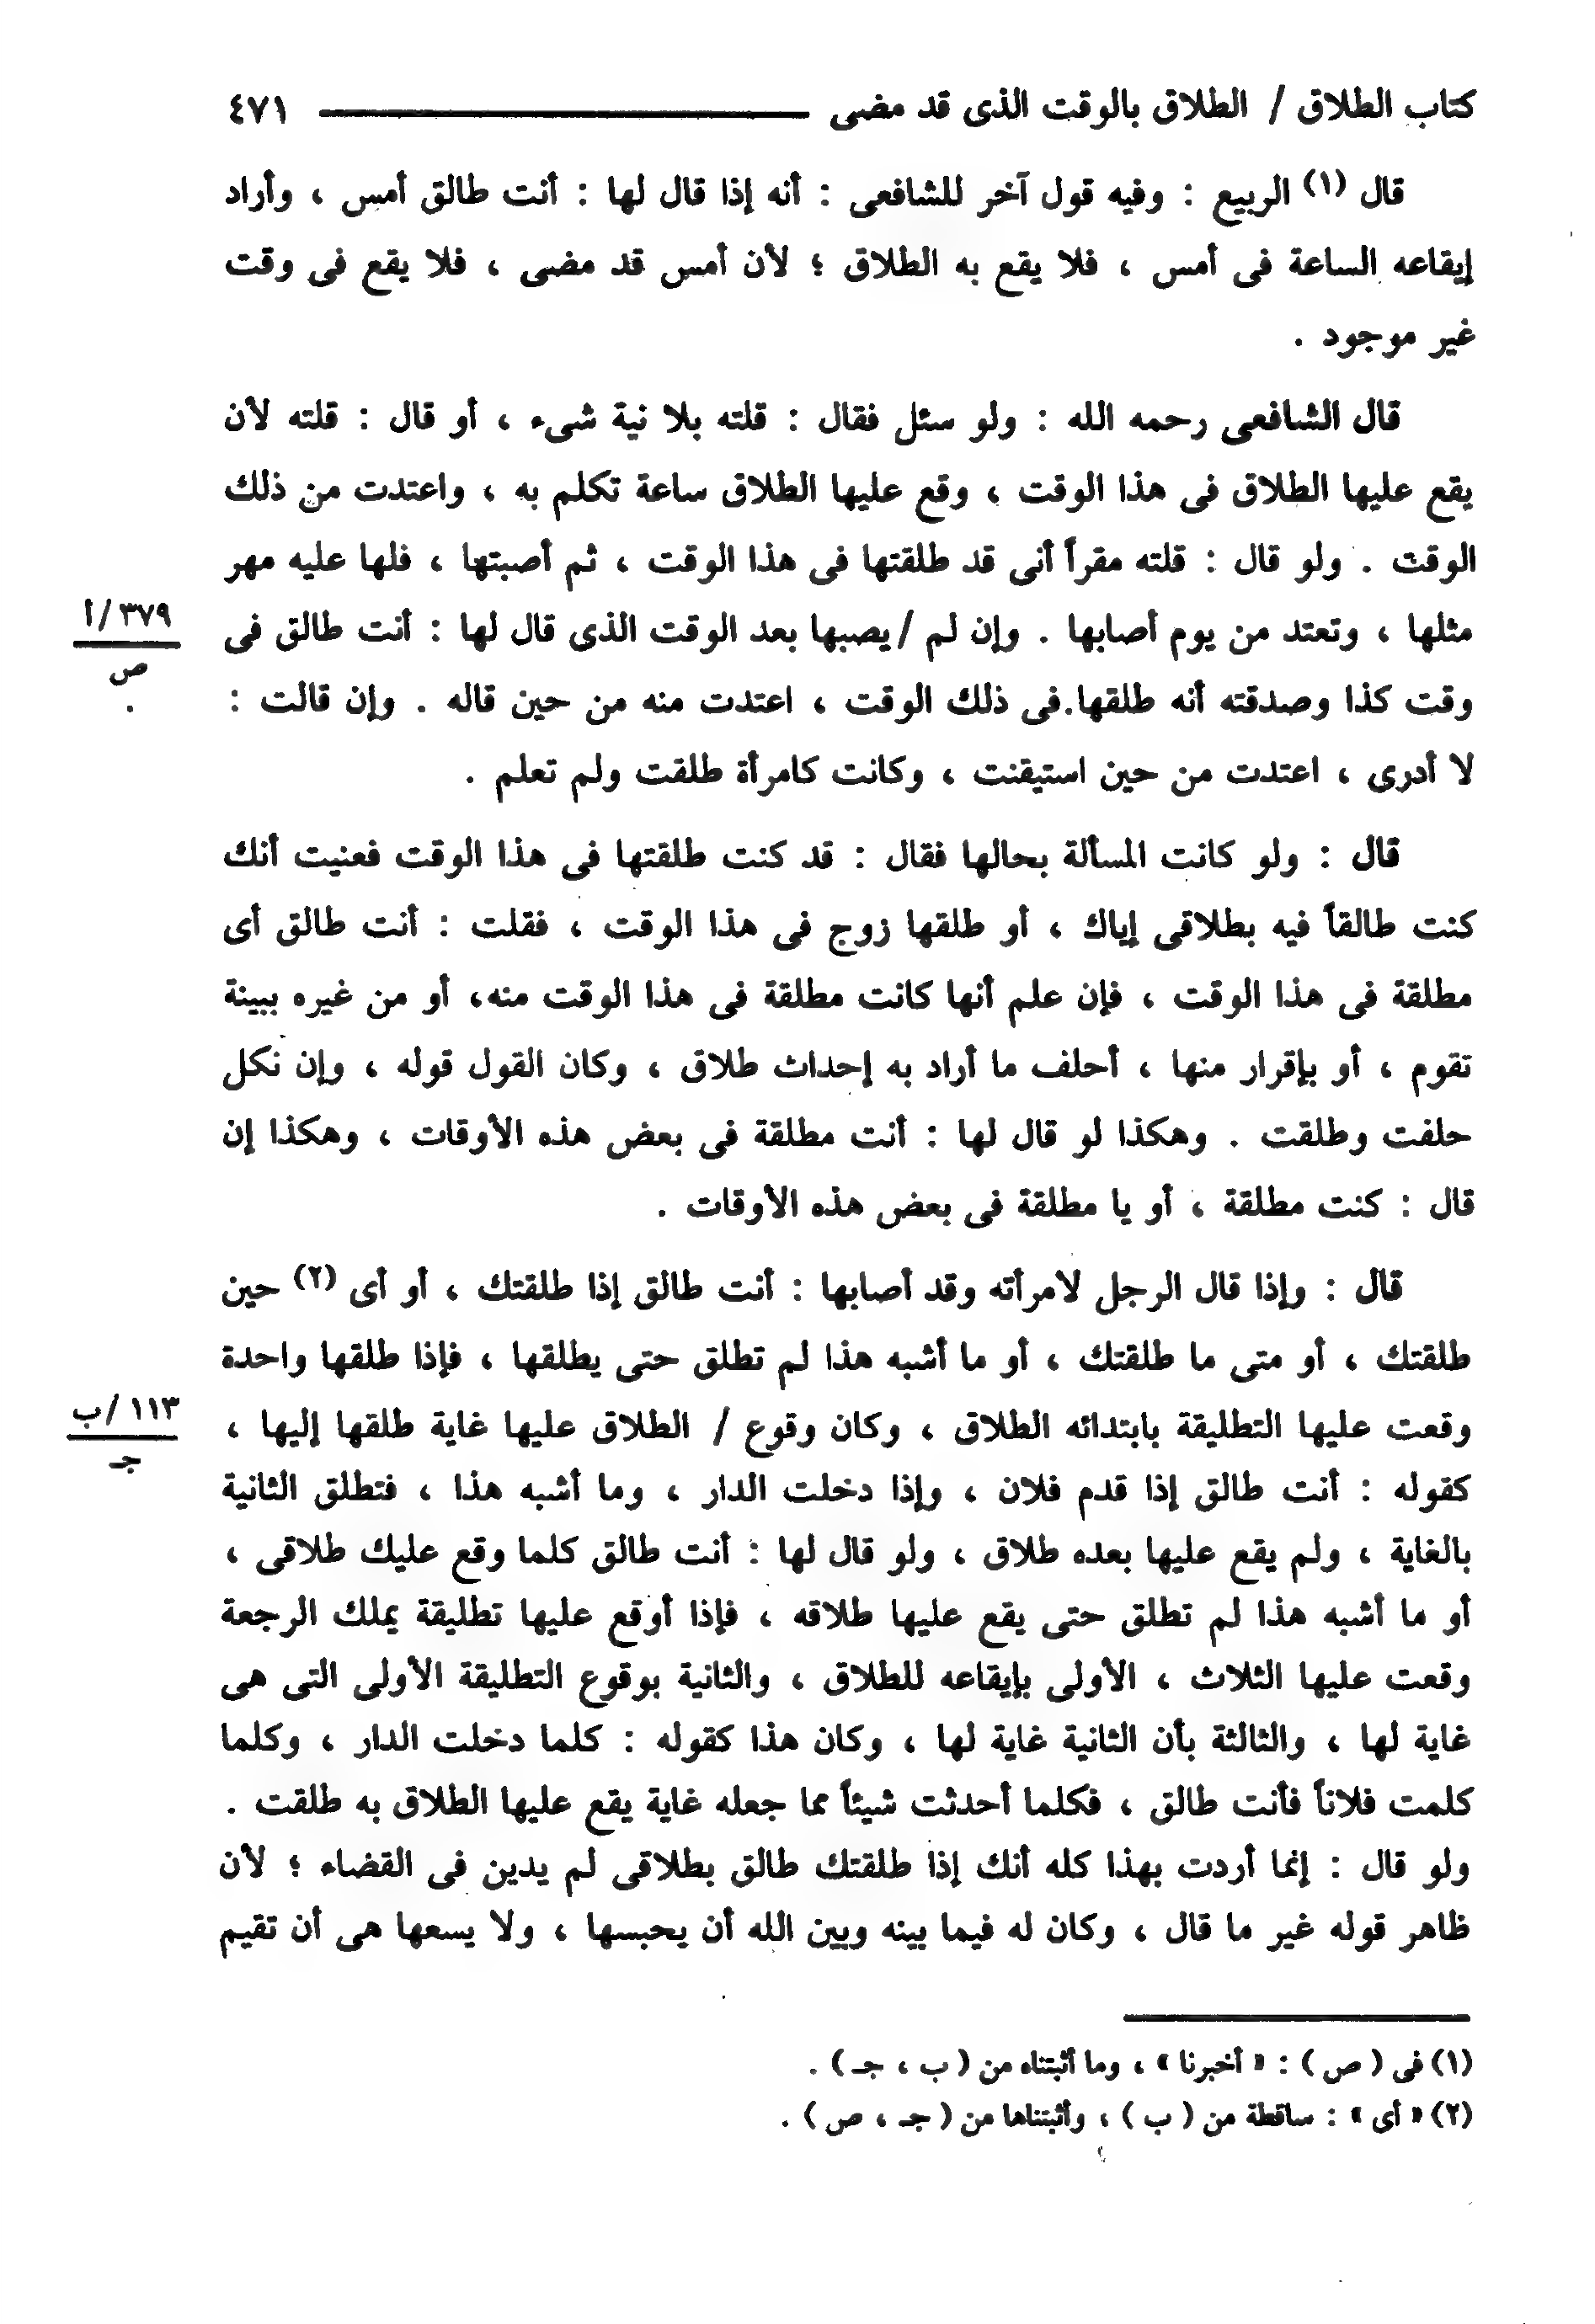 كتاب الطلاق / الطلاق بالوقت الذى قد مضى ٤٧١
قال (١) الربيع : وفيه قول آخر للشافعى : أنه إذا قال لها : أنت طالق أمس ، وأراد
إيقاعه الساعة فى أمس ، فلا يقع به الطلاق ؛ لأن أمس قد مضى ، فلا يقع فى وقت
غير موجود .
قال الشافعى رحمه الله : ولو سئل فقال : قلته بلا نية شىء ، أو قال : قلته لأن
يقع عليها الطلاق فى هذا الوقت ، وقع عليها الطلاق ساعة تكلم به ، واعتدت من ذلك
الوقت . ولو قال : قلته مقراً أنى قد طلقتها فى هذا الوقت ، ثم أصبتها ، فلها عليه مهر
مثلها ، وتعتد من يوم أصابها . وإن لم / يصبها بعد الوقت الذى قال لها : أنت طالق فى
٣٧٩/ أ
ص
وقت كذا وصدقته أنه طلقها.فى ذلك الوقت ، اعتدت منه من حين قاله . وإن قالت :
لا أدرى ، اعتدت من حين استيقنت ، وكانت كامرأة طلقت ولم تعلم .
قال : ولو كانت المسألة بحالها فقال : قد كنت طلقتها فى هذا الوقت فعنيت أنك
كنت طالقاً فيه بطلاقى إياك ، أو طلقها زوج فى هذا الوقت ، فقلت : أنت طالق أى
مطلقة فى هذا الوقت ، فإن علم أنها كانت مطلقة فى هذا الوقت منه، أو من غيره ببينة
تقوم ، أو بإقرار منها ، أحلف ما أراد به إحداث طلاق ، وكان القول قوله ، وإن نكل
حلفت وطلقت . وهكذا لو قال لها : أنت مطلقة فى بعض هذه الأوقات ، وهكذا إن
قال : كنت مطلقة ، أو يا مطلقة فى بعض هذه الأوقات .
قال : وإذا قال الرجل لامرأته وقد أصابها : أنت طالق إذا طلقتك ، أو أى (٢) حين
طلقتك ، أو متى ما طلقتك ، أو ما أشبه هذا لم تطلق حتى يطلقها ، فإذا طلقها واحدة
وقعت عليها التطليقة بابتدائه الطلاق ، وكان وقوع / الطلاق عليها غاية طلقها إليها ،
١١٣/ ب
جـ
كقوله : أنت طالق إذا قدم فلان ، وإذا دخلت الدار ، وما أشبه هذا ، فتطلق الثانية
بالغاية ، ولم يقع عليها بعده طلاق ، ولو قال لها : أنت طالق كلما وقع عليك طلاقى ،
أو ما أشبه هذا لم تطلق حتى يقع عليها طلاقه ، فإذا أوقع عليها تطليقة يملك الرجعة
وقعت عليها الثلاث ، الأولى بإيقاعه للطلاق ، والثانية بوقوع التطليقة الأولى التى هى
غاية لها ، والثالثة بأن الثانية غاية لها ، وكان هذا كقوله : كلما دخلت الدار ، وكلما
كلمت فلاناً فأنت طالق ، فكلما أحدثت شيئاً مما جعله غاية يقع عليها الطلاق به طلقت .
ولو قال : إنما أردت بهذا كله أنك إذا طلقتك طالق بطلاقى لم يدين فى القضاء ؛ لأن
ظاهر قوله غير ما قال ، وكان له فيما بينه وبين الله أن يحبسها ، ولا يسعها هى أن تقيم
(١) فى ( ص ) : « أخبرنا » ، وما أثبتناه من ( ب ، جـ ) .
(٢) « أى » : ساقطة من ( ب ) ، وأثبتناها من ( جـ ، ص ) .